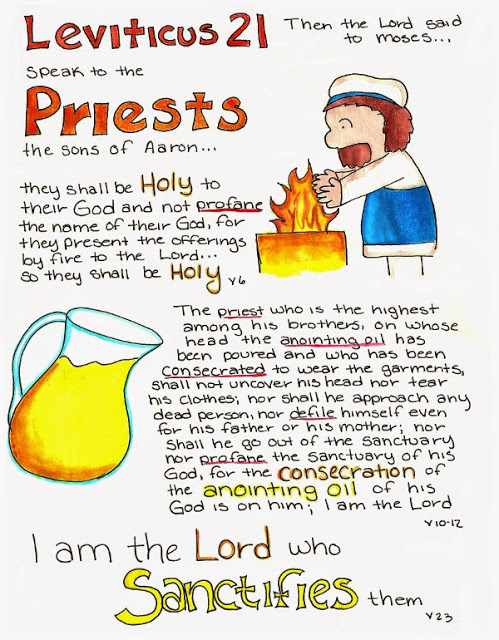 Leviticus 21
Then the Lord said
to moses...
Speak to the
Priests
the sons of Aaron...
they shall be Holy to
their God and not profane
the name of their God, for
they present the offerings
by fire to the Lord...
so they shall be Holy v6
The priest who is the highest
among his brothers, on whose
head the anointing oil has
been poured and who has been
consecrated to wear the garments,
shall not uncover his head nor tear
his clothes; nor shall he approach any
dead person, nor defile himself even
for his father or his mother; nor
shall he go out of the sanctuary
nor profane the sanctuary of his
God, for the consecration of
the anointing oil of his
God is on him; I am the Lord
v10-12
I am the Lord who
Sanctifies them
v23